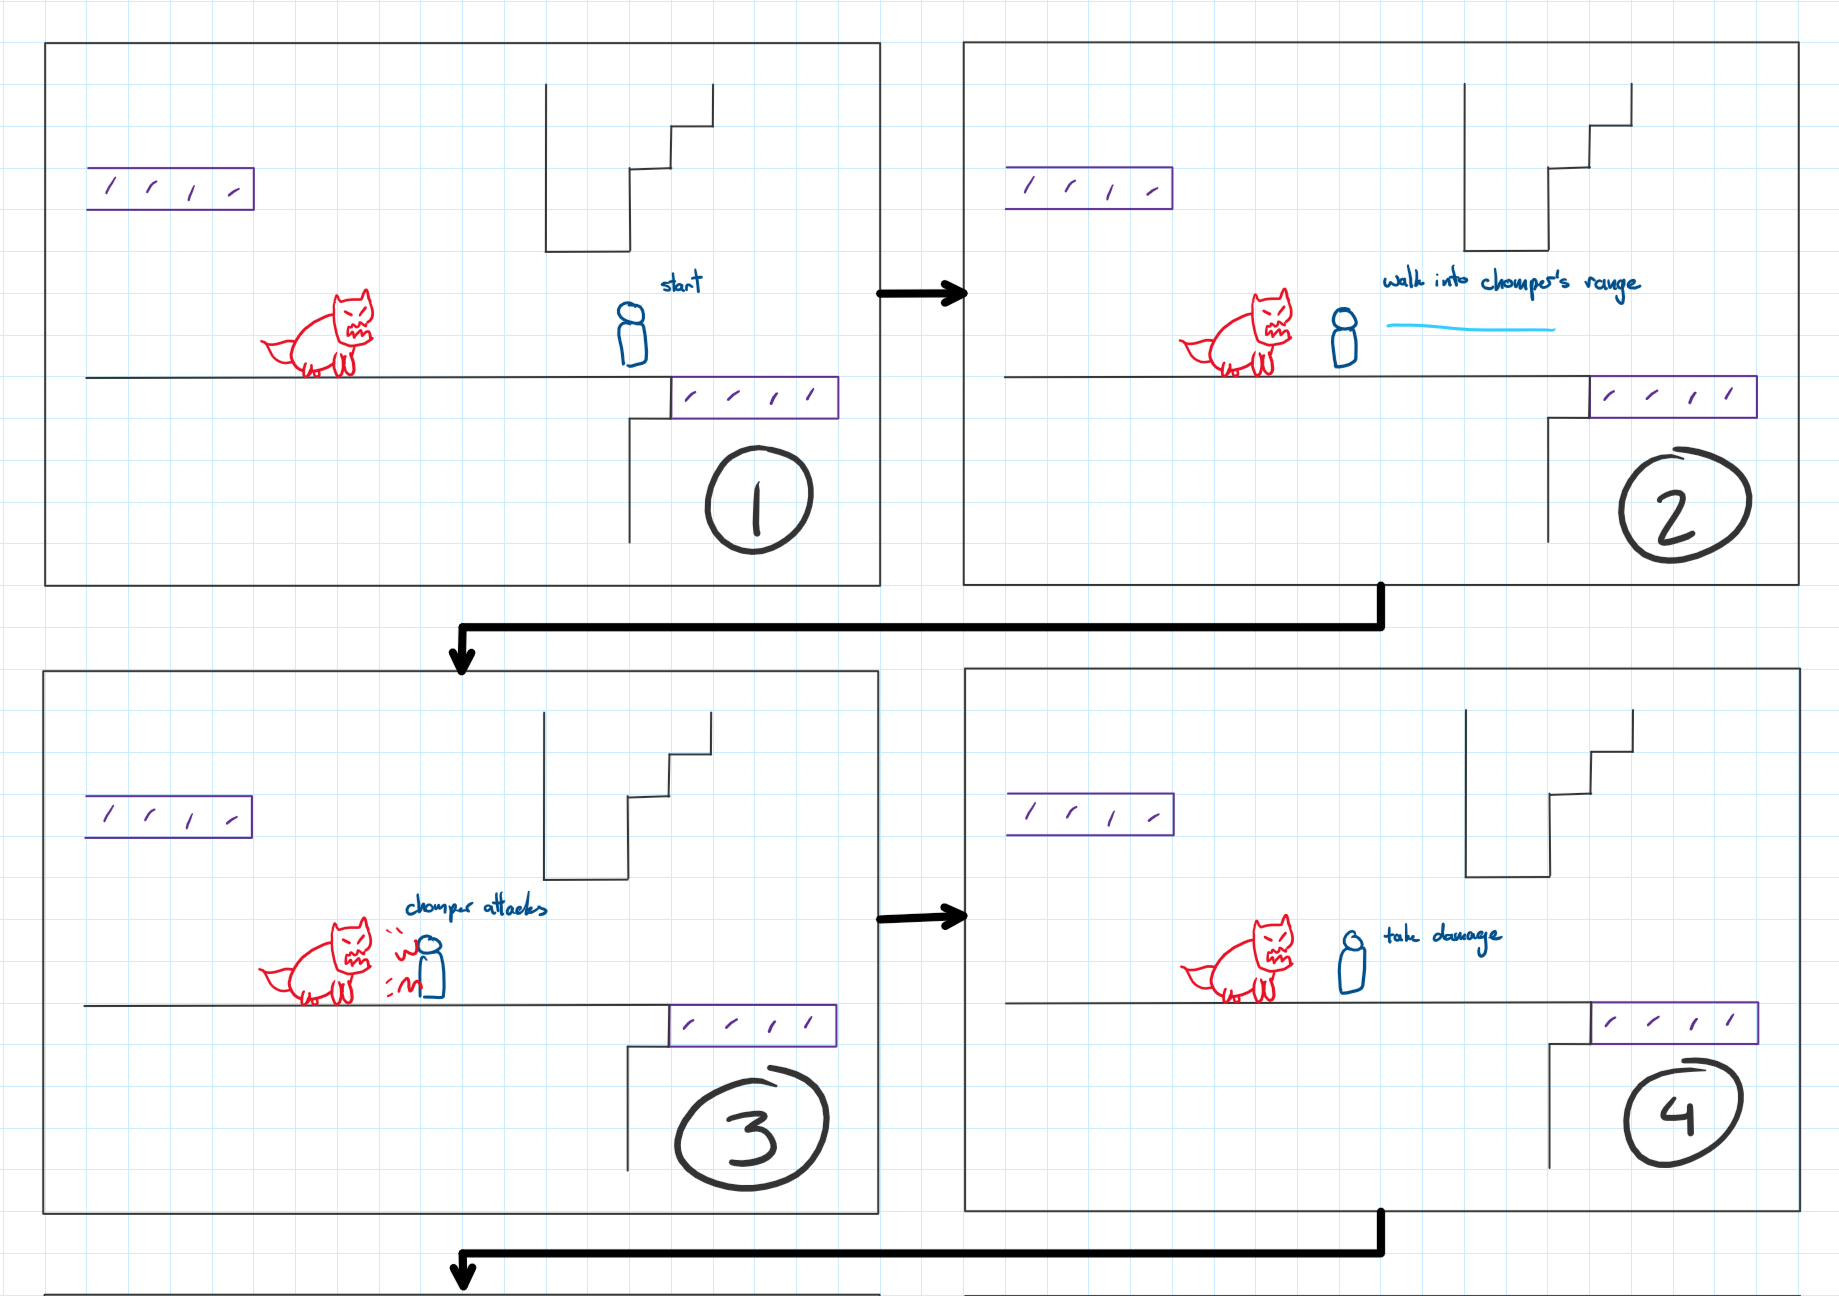 start
1
walk into chomper's range
2
chomper attacks
3
take damage
4